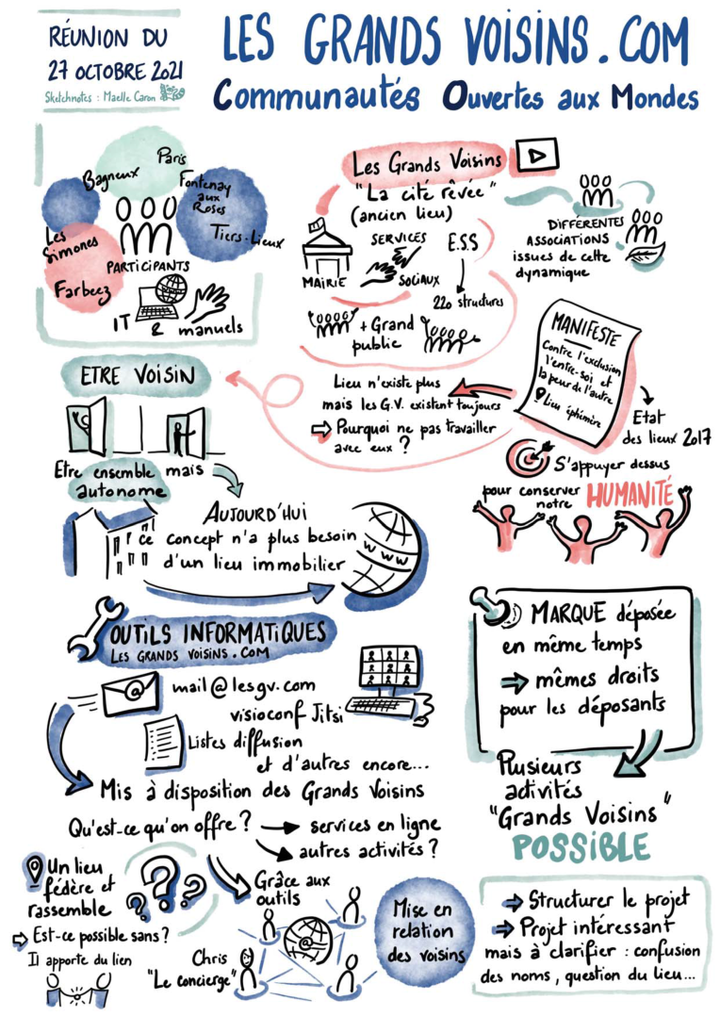 RÉUNION DU
27 OCTOBRE 2021
Sketchnotes : Maelle Caron
LES GRANDS VOISINS.COM
Communautés Ouvertes aux Mondes
Paris
Bagneux
Fontenay
aux
Roses
Tiers-Lieux
Les
Simones
Farbeez
PARTICIPANTS
IT & manuels
Les Grands Voisins
"La cité rêvée"
(ancien lieu)
MAIRIE
SERVICES
SOCIAUX
E.S.S
220 structures
+ Grand
public
DIFFÉRENTES
ASSOCIATIONS
issues de cette
dynamique
MANIFESTE
Contre l'exclusion
l'entre-soi et
la peur de l'autre
Lieu éphémère
Etat
des lieux 2017
Lieu n'existe plus
mais les G.V. existent toujours
Pourquoi ne pas travailler
avec eux ?
S'appuyer dessus
pour conserver
notre HUMANITÉ
ETRE VOISIN
Etre ensemble mais
autonome
AUJOURD'HUI
ce concept n'a plus besoin
d'un lieu immobilier
WWW
OUTILS INFORMATIQUES
LES GRANDS VOISINS.COM
@
mail@lesgv.com
visioconf Jitsi
Listes diffusion
et d'autres encore...
Mis à disposition des Grands Voisins
MARQUE déposée
en même temps
mêmes droits
pour les déposants
Plusieurs
activités
"Grands Voisins"
POSSIBLE
Qu'est-ce qu'on offre ? → services en ligne
autres activités ?
Un lieu
fédère et
rassemble
Est-ce possible sans ?
Il apporte du lien
???
Grâce aux
outils
@
Chris
"Le concierge"
Mise en
relation
des voisins
Structurer le projet
Projet intéressant
mais à clarifier : confusion
des noms, question du lieu...